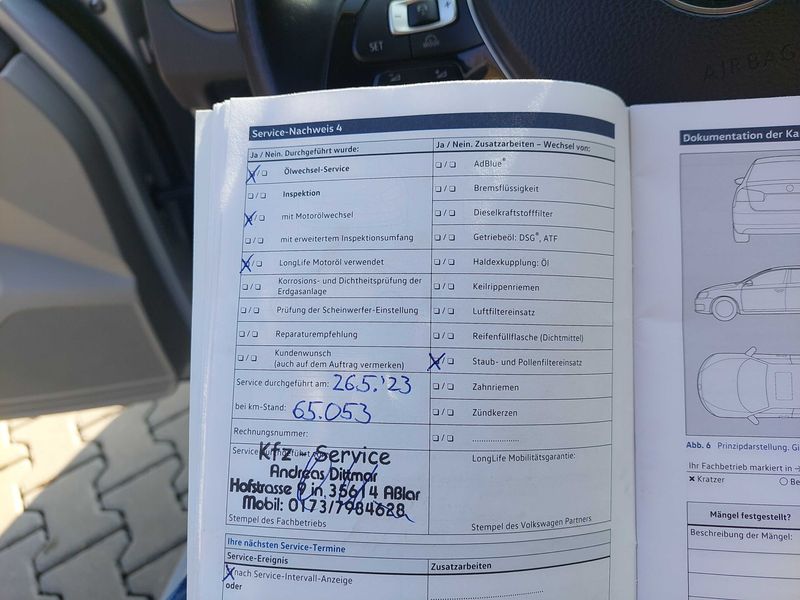 SET
+
AIRBAG
Service-Nachweis 4
Ja / Nein. Durchgeführt wurde:
Ja / Nein. Zusatzarbeiten – Wechsel von:
Ölwechsel-Service
AdBlue®
Inspektion
Bremsflüssigkeit
mit Motorölwechsel
Dieselkraftstofffilter
mit erweitertem Inspektionsumfang
Getriebeöl: DSG®, ATF
LongLife Motoröl verwendet
Haldexkupplung: Öl
Korrosions- und Dichtheitsprüfung der
Erdgasanlage
Keilrippenriemen
Prüfung der Scheinwerfer-Einstellung
Luftfiltereinsatz
Reparaturempfehlung
Reifenfüllflasche (Dichtmittel)
Kundenwunsch
(auch auf dem Auftrag vermerken)
Staub- und Pollenfiltereinsatz
Service durchgeführt am: 26.5.'23
Zahnriemen
bei km-Stand: 65.053
Zündkerzen
Rechnungsnummer:
Service durchgeführt
LongLife Mobilitätsgarantie:
Kfz - Service
Andreas Dittmar
Hofstrasse 9 in 35614 Aßlar
Mobil: 0173/7984628
Stempel des Fachbetriebs
Stempel des Volkswagen Partners
Ihre nächsten Service-Termine
Service-Ereignis
Zusatzarbeiten
nach Service-Intervall-Anzeige
oder
Dokumentation der Ka
Abb. 6 Prinzipdarstellung. Gi
Ihr Fachbetrieb markiert in
× Kratzer
○ Be
Mängel festgestellt?
Beschreibung der Mängel: